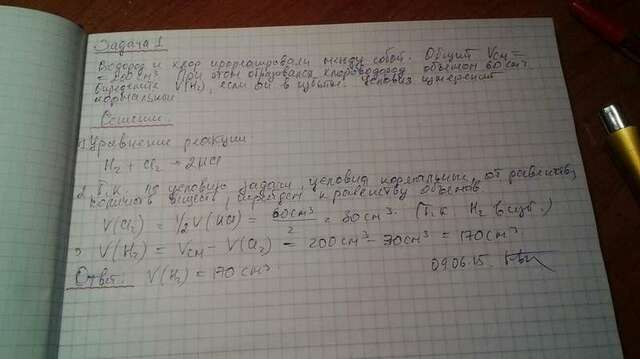 Задача 1
Водород и хлор прореагировали между собой. Общий Vсм =
= 200 см³. При этом образовался хлороводород объёмом 60 см³.
Определите V(H₂), если он в избытке. Условия измерений
нормальные
Решение.
1. Уравнение реакции
H₂ + Cl₂ → 2HCl
2. Т.к. по условию задачи, условия нормальные, от равенства
количеств веществ, перейдем к равенству объёмов
V(Cl₂) = 1/2 V(HCl) = 60см³/2 = 30см³. (Т.к H₂ в изб.)
V(H₂) = Vсм - V(Cl₂) = 200см³ - 30см³ = 170см³
Ответ. V(H₂) = 170см³
09.06.15.